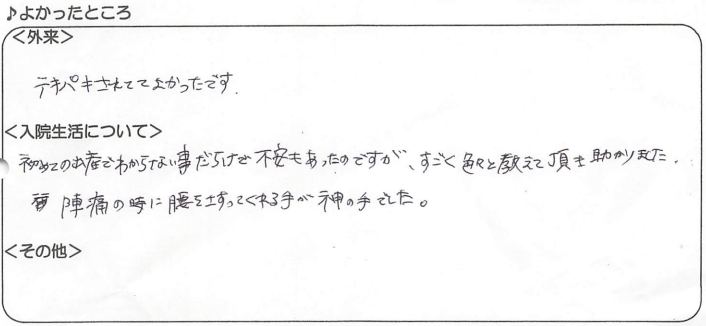 ♪よかったところ
<外来>
テキパキされててよかったです.
<入院生活について>
初めてのお産でわからない事だらけで不安もあったのですが、すごく色々と教えて頂き助かりました.
陣痛の時に腰をさすってくれる手が神の手でした。
<その他>